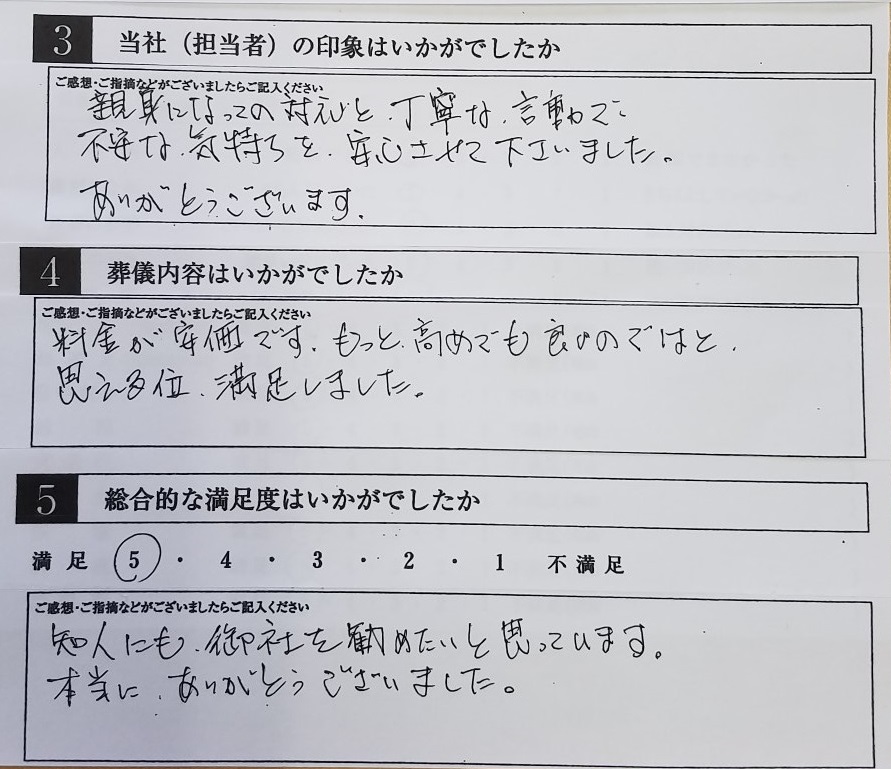 3 当社（担当者）の印象はいかがでしたか
ご感想・ご指摘などがございましたらご記入ください
親身になっての対応と、丁寧な、言動で
不安な、気持ちを、安心させて下さいました。
ありがとうございます。
4 葬儀内容はいかがでしたか
ご感想・ご指摘などがございましたらご記入ください
料金が安価です、もっと、高めでも良いのではと、
思える位、満足しました。
5 総合的な満足度はいかがでしたか
満足 5 ・ 4 ・ 3 ・ 2 ・ 1 不満足
ご感想・ご指摘などがございましたらご記入ください
知人にも、御社を勧めたいと思っています。
本当に、ありがとうございました。